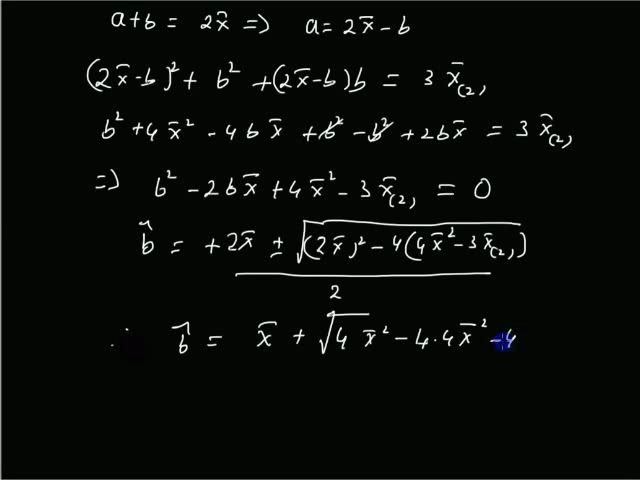 a+b = 2x̄ => a = 2x̄ - b
(2x̄-b)² + b² + (2x̄-b)b = 3 x̄(2),
b² + 4x̄² - 4bx̄ + b² - b² + 2bx̄ = 3 x̄(2),
=> b² - 2bx̄ + 4x̄² - 3x̄(2), = 0
b̂ = +2x̄ ± √(2x̄)² - 4(4x̄² - 3x̄(2),)
2
∴ b̂ = x̄ + √4 x̄² - 4·4x̄² - 4